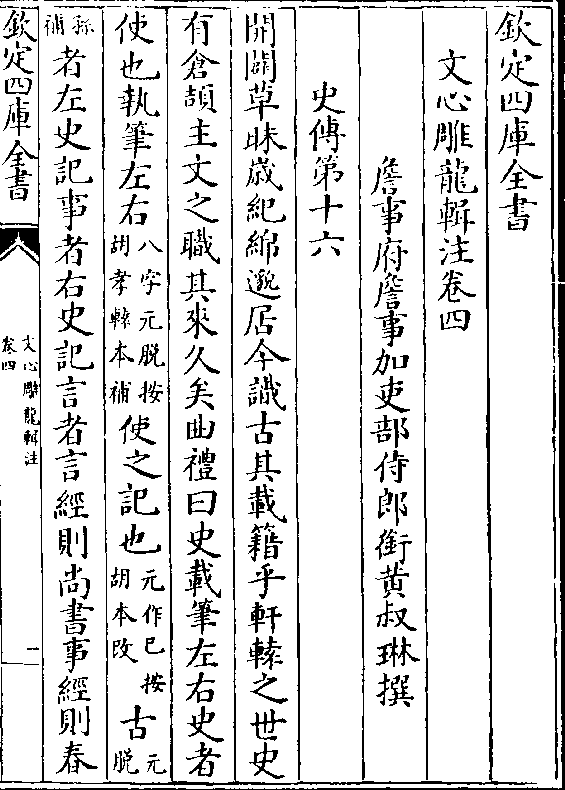 欽定四庫全書
文心雕龍輯注卷四
詹事府詹事加吏部侍郎銜黄叔琳撰
史傳第十六
開闢草昧歲紀綿邈居今識古其載籍乎軒轅之世史
有倉頡主文之職其來久矣曲禮曰史載筆左右史者
使也執筆左右八字元脱按胡孝轅本補使之記也元作已按胡本改古元脱
孫補者左史記事者右史記言者言經則尚書事經則春
欽定四庫全書
文心雕龍輯注
卷四
一